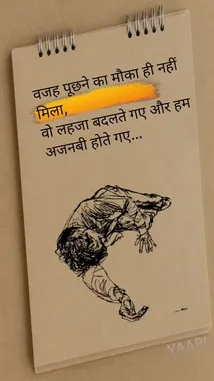 वजह पूछने का मौका ही नहीं
मिला,
वो लहजा बदलते गए और हम
अजनबी होते गए...
YAAPI